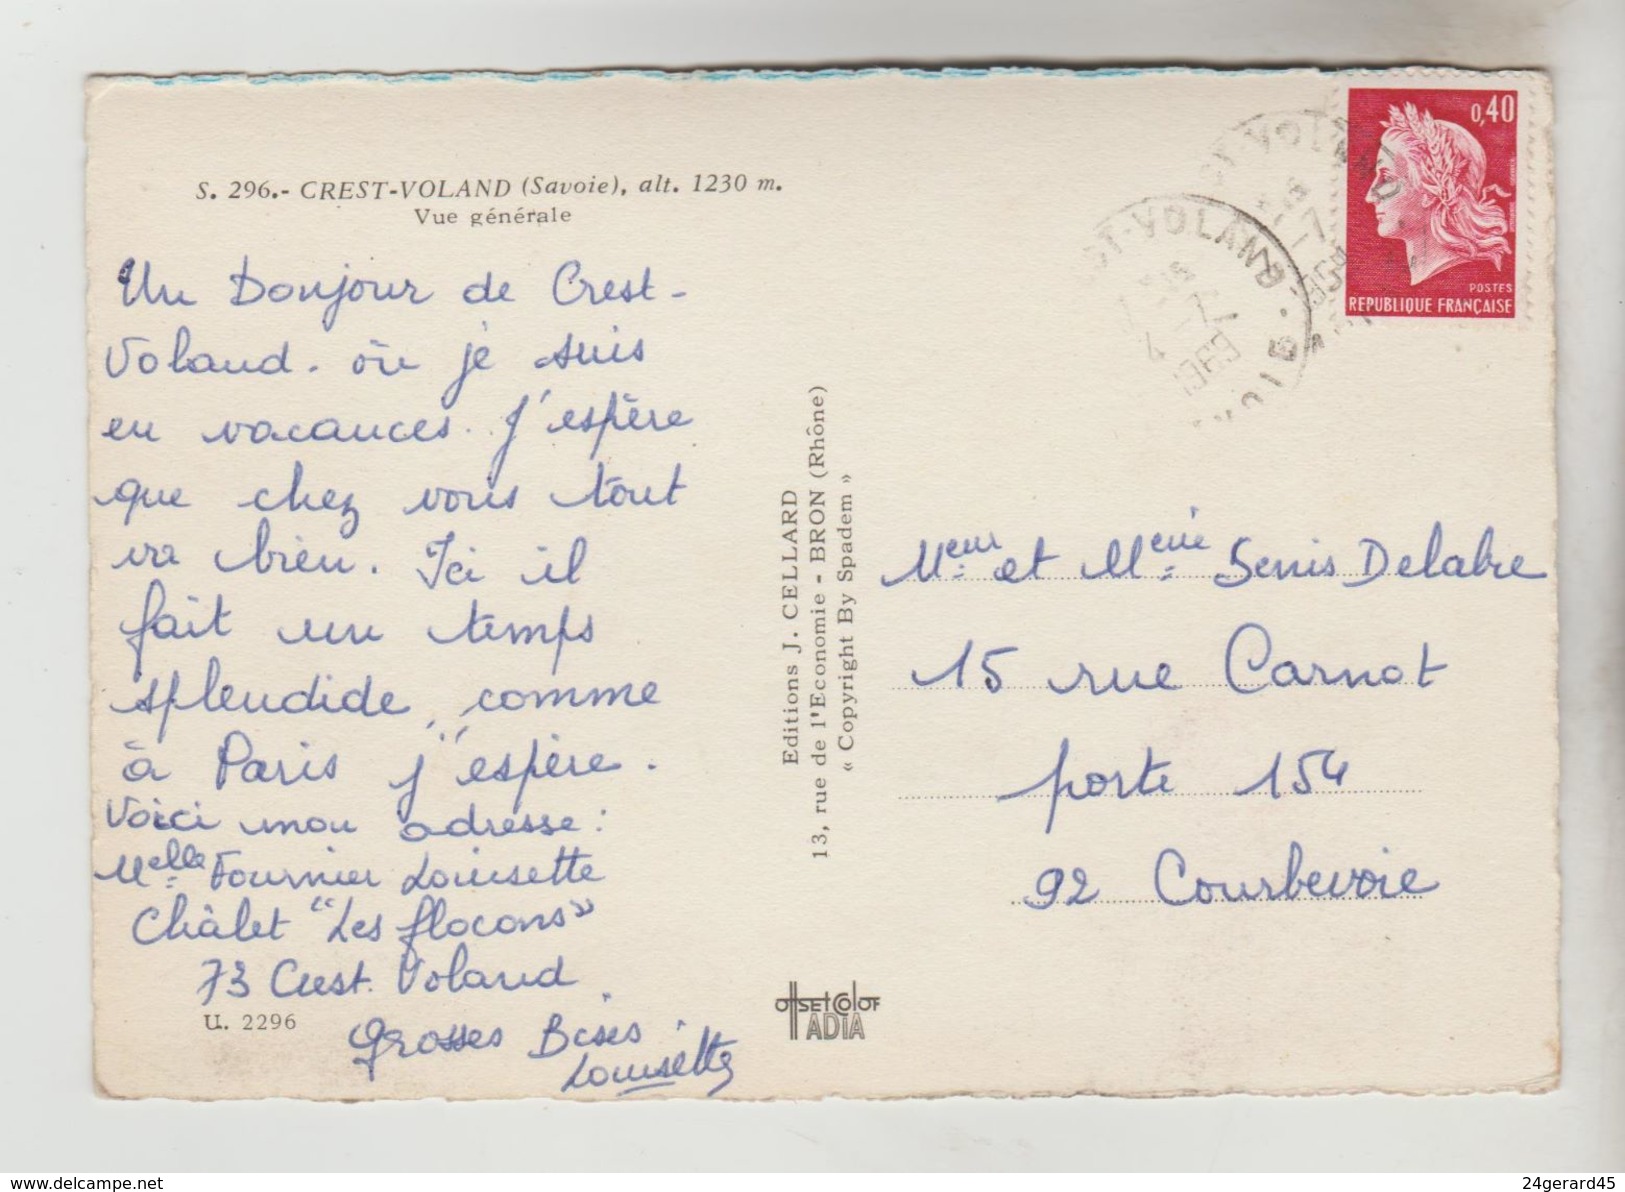 S. 296.- CREST-VOLAND (Savoie), alt. 1230 m.
Vue générale
Un Bonjour de Crest-
Voland. où je suis
en vacances. J'espère
que chez vous tout
va bien. Ici il
fait un temps
splendide, comme
à Paris j'espère.
Voici mon adresse:
Melle Fournier Louisette
Châlet "Les flocons"
73 Crest. Voland
U. 2296
Grosses Bises
Louisette
Editions J. CELLARD
13, rue de l'Economie - BRON (Rhône)
« Copyright By Spadem »
OffSEtColoR
ADIA
0,40
POSTES
REPUBLIQUE FRANÇAISE
ST-VOLAND
4 -7
1969
Meur et Meme Denis Delabre
15 rue Carnot
porte 154
92 Courbevoie
www.delcampe.net
24gerard45